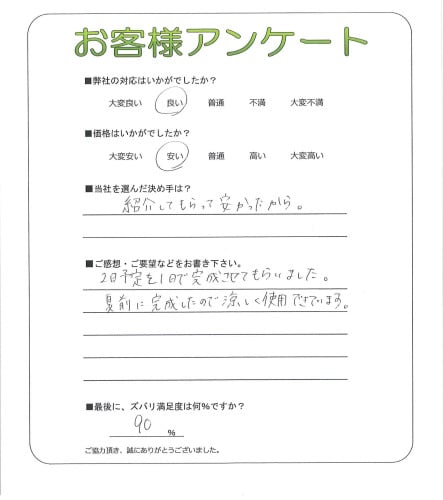 お客様アンケート
■弊社の対応はいかがでしたか?
大変良い 良い 普通 不満 大変不満
■価格はいかがでしたか?
大変安い 安い 普通 高い 大変高い
■当社を選んだ決め手は?
紹介してもらって安かったから。
■ご感想・ご要望などをお書き下さい。
2日予定を1日で完成させてもらいました。
夏前に完成したので涼しく使用できています。
■最後に、ズバリ満足度は何%ですか?
90 %
ご協力頂き、誠にありがとうございました。